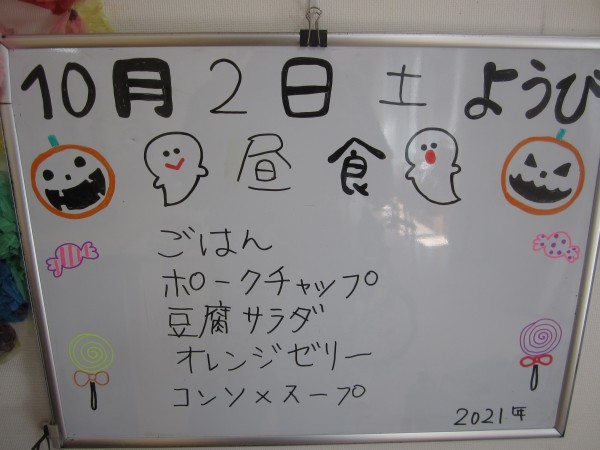 10月2日土ようび
昼食
ごはん
ポークチャップ
豆腐サラダ
オレンジゼリー
コンソメスープ
2021年